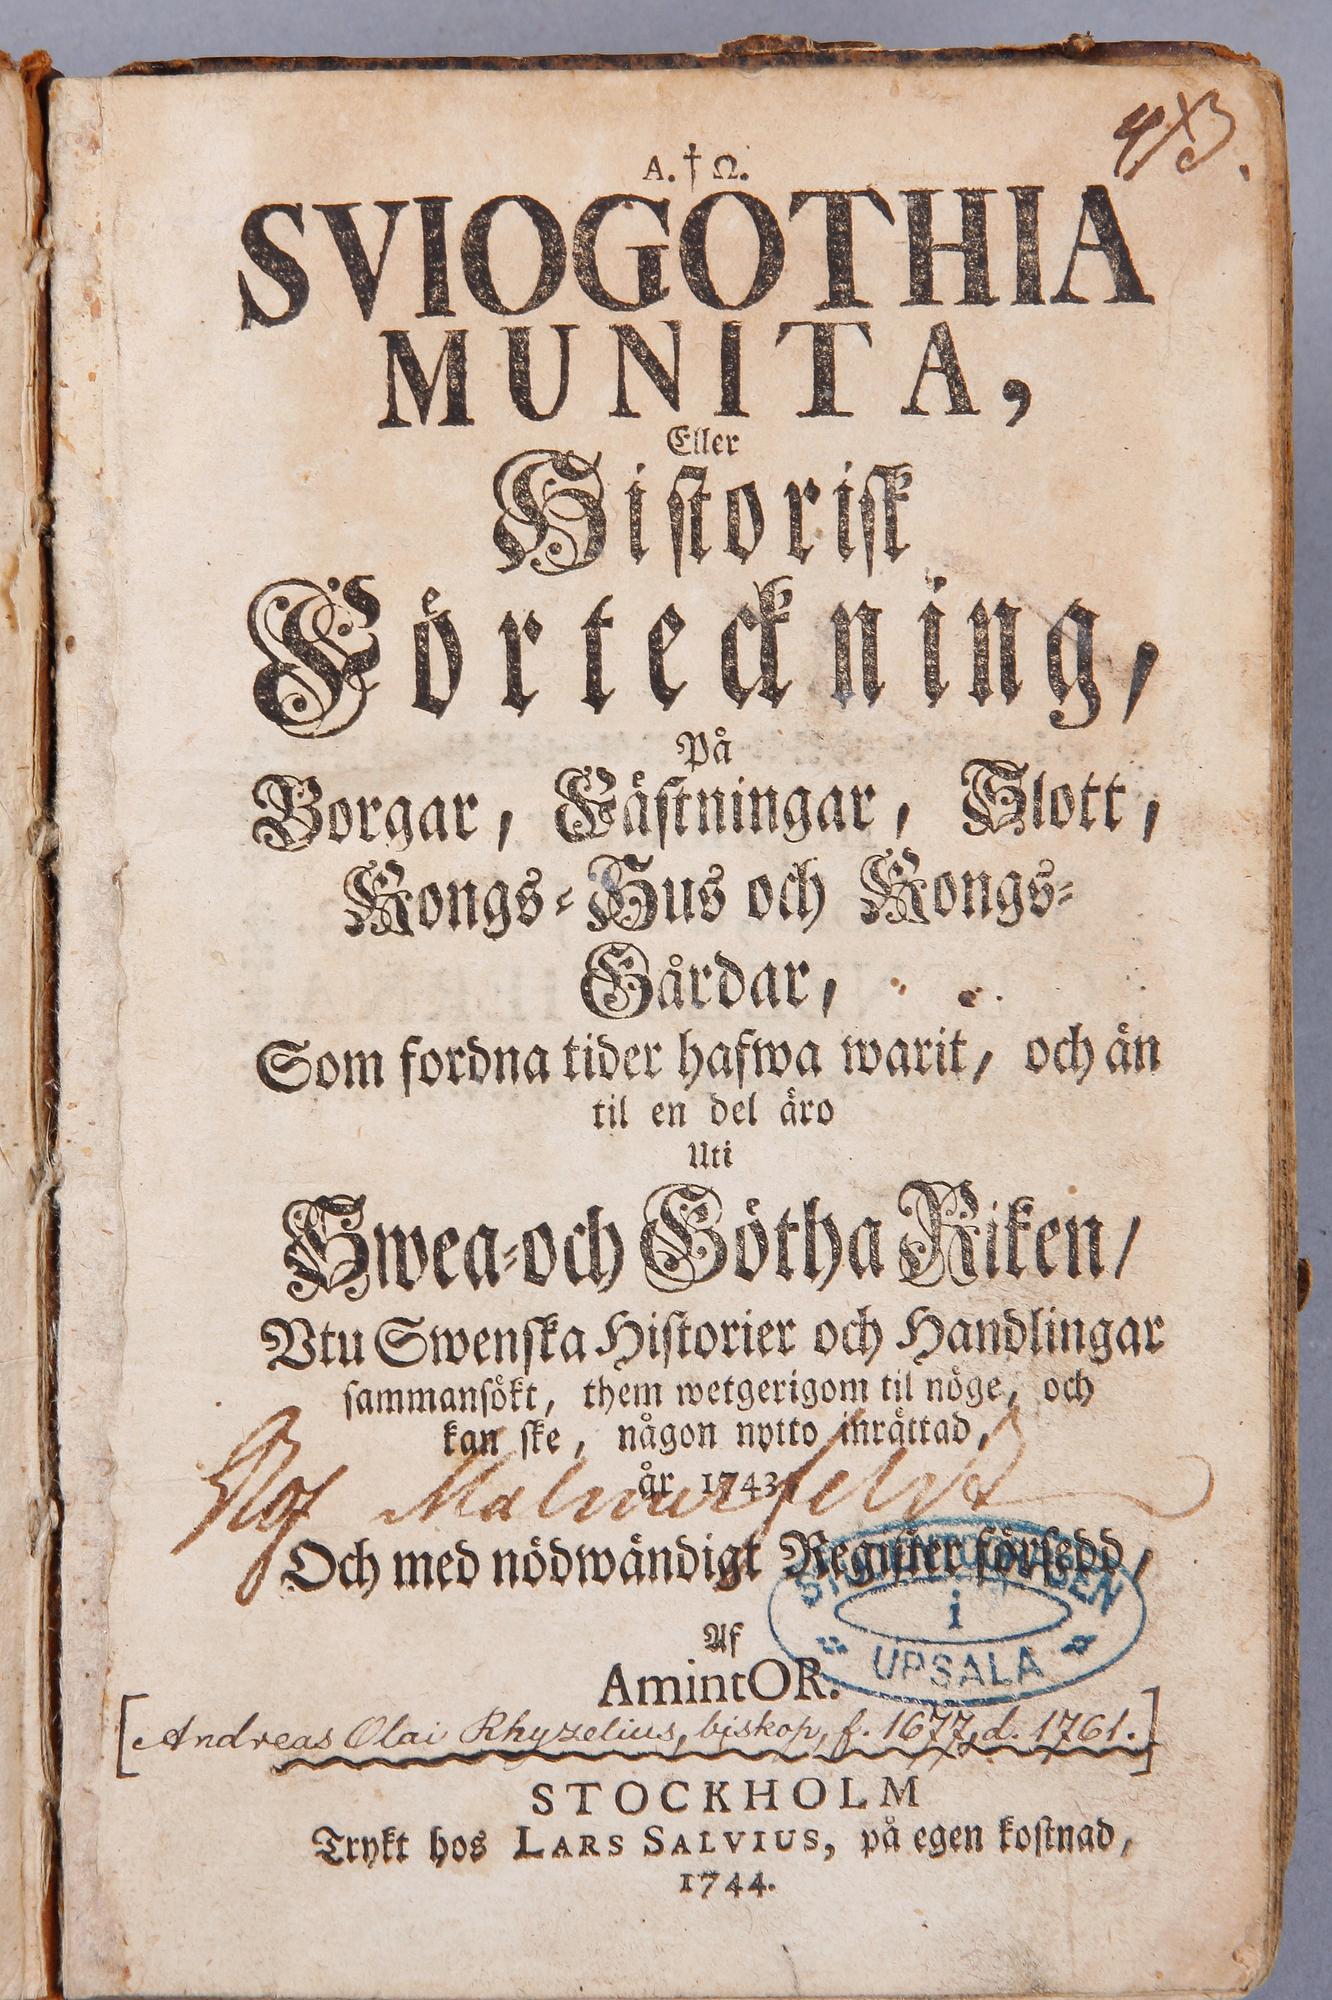 A. † Ω.
SVIOGOTHIA
MUNITA,
Eller
Historisk
Förteckning,
På
Borgar, Fästningar, Slott,
Kongs-Hus och Kongs-
Gårdar,
Som fordna tider hafwa warit, och än
til en del äro
Uti
Swea-och Götha Riken/
Vtu Swenska Historier och Handlingar
sammansökt, them wetgerigom til nöge, och
kan ske, någon nytto inrättad,
år 1743
Och med nödwändigt Register försedd,
i
UPSALA
Af
AmintOR.
[Andreas Olai Rhyzelius, biskop, f. 1677, d. 1761.]
STOCKHOLM
Trykt hos LARS SALVIUS, på egen kostnad,
1744.